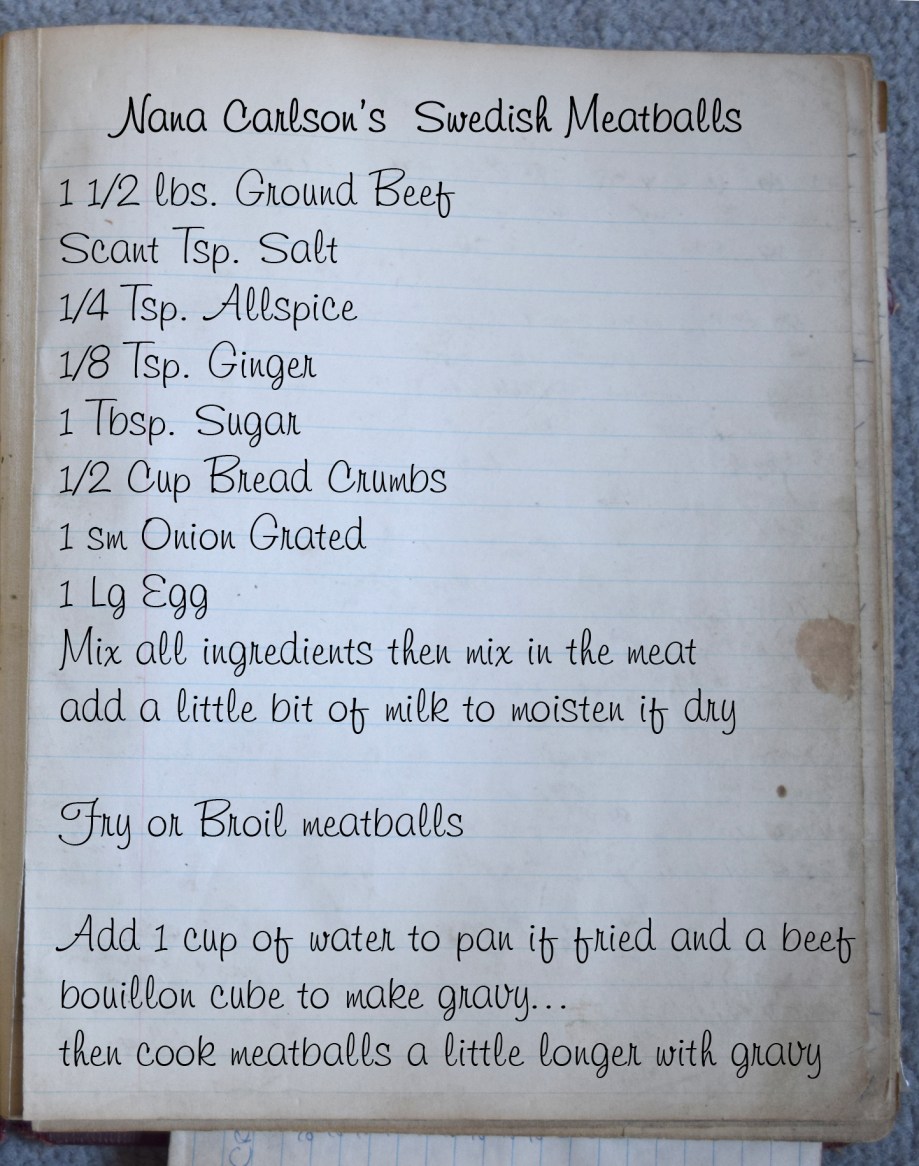 Nana Carlson's Swedish Meatballs
1 1/2 lbs. Ground Beef
Scant Tsp. Salt
1/4 Tsp. Allspice
1/8 Tsp. Ginger
1 Tbsp. Sugar
1/2 Cup Bread Crumbs
1 sm Onion Grated
1 Lg Egg
Mix all ingredients then mix in the meat
add a little bit of milk to moisten if dry
Fry or Broil meatballs
Add 1 cup of water to pan if fried and a beef
bouillon cube to make gravy...
then cook meatballs a little longer with gravy